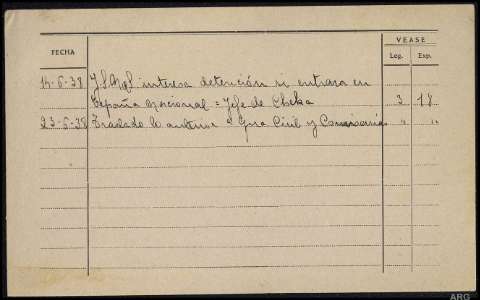 FECHA
VEASE
Leg. Exp.
14-6-38 interesa detención si entrara en
España nacional = Jefe de Cheka 3 17
23-6-38 Traslado lo anterior a Gra Civil y Comisaria " "
ARG